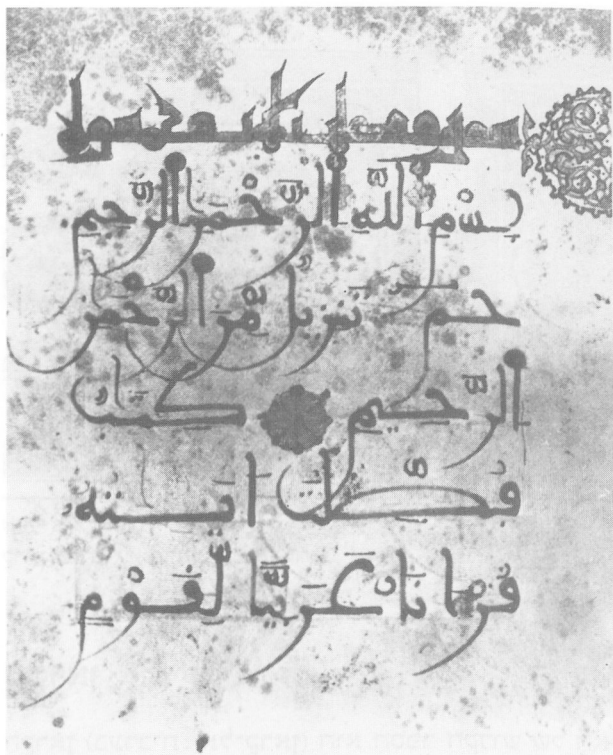 بسم الله الرحمن الرحيم
حم تنزيل من الرحمن
الرحيم كتب
فصلت ايته
قرانا عربيا لقوم